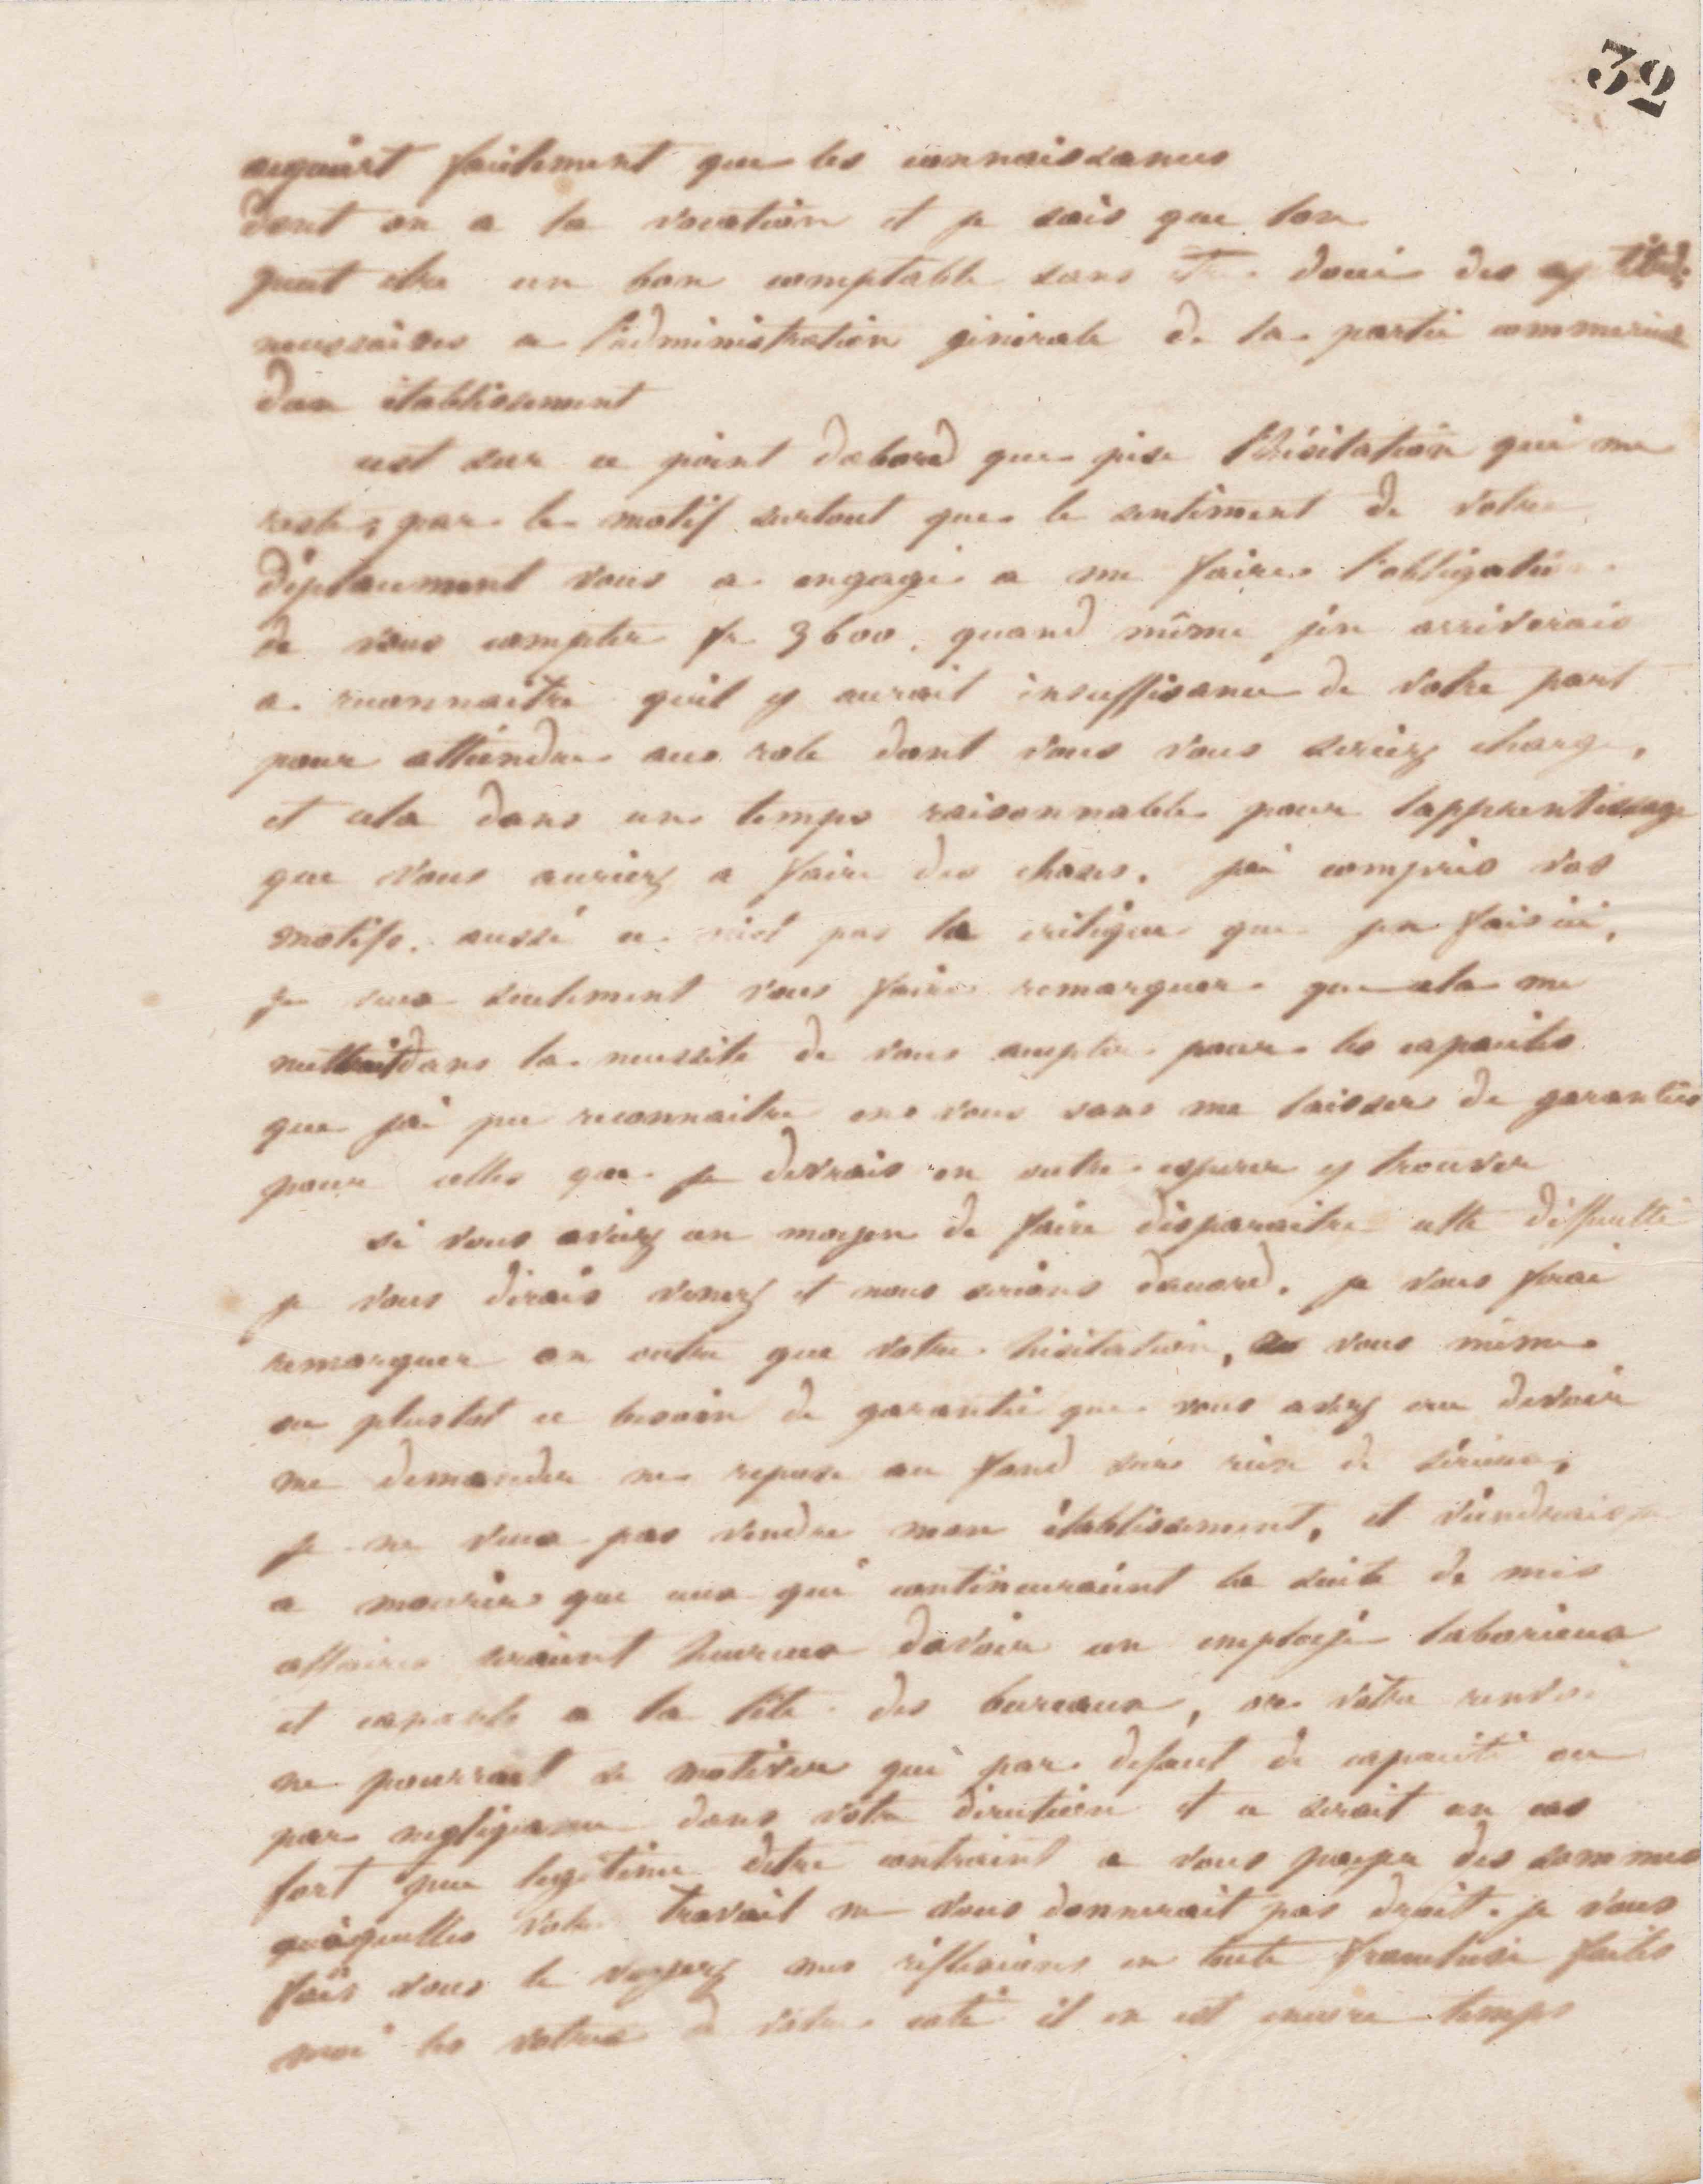 32
acquiert facilement que les connaissances
dont on a la vocation et je sais que lon
peut etre un bon comptable sans etre doué des aptitudes
necessaires a l'administration générale de la partie commerciale
dun établissement
cest sur ce point dabord que pèse l'hésitation qui me
reste, par le motif surtout que le sentiment de votre
déplacement vous a engagé a me faire l'obligation
de vous compter fr 3600. quand même j'en arriverais
a reconnaitre qu'il y aurait insuffisance de votre part
pour atteindre au role dont vous vous seriez chargé,
et cela dans un temps raisonnable pour lapprentissage
que vous auriez a faire des choses. j'ai compris vos
motifs. aussi ce n'est pas la critique que j'en fais ici,
je veux seulement vous faire remarquer que cela me
mettrait dans la necessité de vous accepter pour les capacités
que j'ai pu reconnaitre en vous sans me laisser de garanties
pour celles que je devrais en outre esperer y trouver
si vous aviez un moyen de faire disparaitre cette difficulté
je vous dirais venez et nous serions daccord. je vous ferai
remarquer en outre que votre hésitation, vous même
ou plustot ce besoin de garantie que vous avez cru devoir
me demander ne repose au fond sur rien de sérieux,
je ne veux pas vendre mon établissement, et viendrais je
a mourir que ceux qui continueraient la suite de mes
affaires seraient heureux davoir un employé laborieux
et capable a la tête des bureaux, or votre renvoi
ne pourrait se motiver que par defaut de capacité ou
par negligeance dans votre direction et ce serait un cas
fort peu legitime detre contraint a vous payer des sommes
auxquelles votre travail ne vous donnerait pas droit. je vous
fais vous le voyez mes réflexions en toute franchise faites
moi les votres de votre coté il en est encore temps